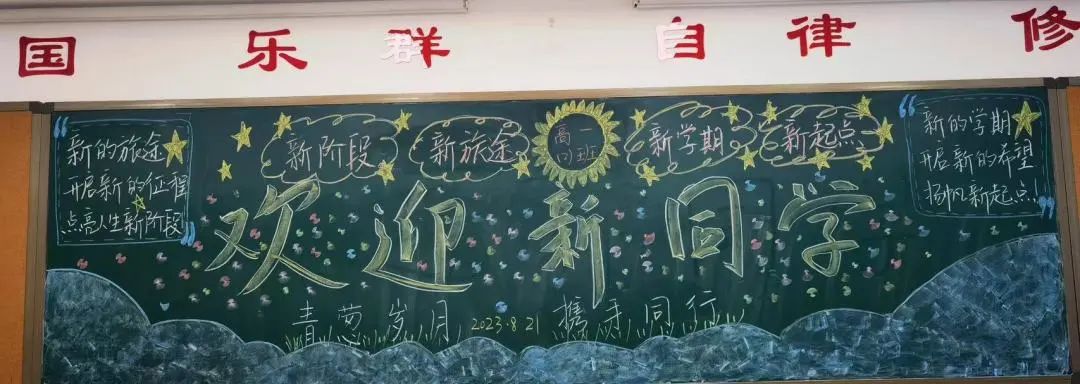 国 乐群 自律 修
新的旅途
开启新的征程
点亮人生新阶段
新阶段
新旅途
高一
班
新学期
新起点
新的学期
开启新的希望
扬帆新起点!
欢迎新同学
青葱岁月 2023.8.21 携手同行